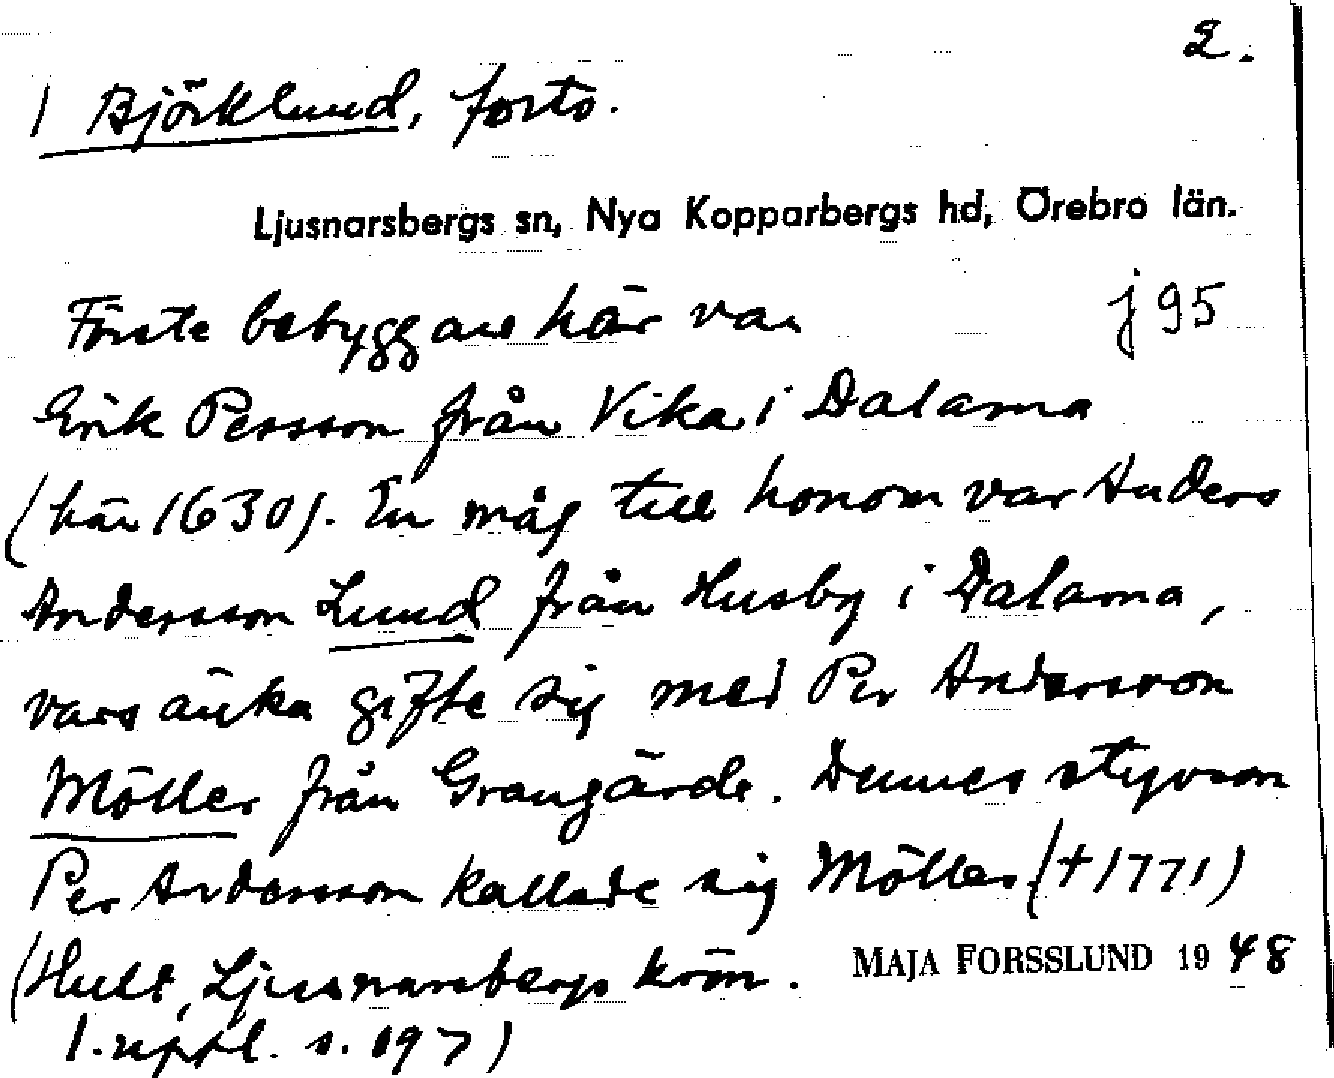 2.
1 Björklund, forts.
Ljusnarsbergs sn, Nya Kopparbergs hd, Örebro län.
Förste bebyggare här var j 95
Erik Persson från Vika i Dalarna
(här 1630). En måg till honom var Anders
Andersson Lund från Husby i Dalarna,
vars änka gifte sig med Per Andersson
Möller från Grangärde. Dennes styvson
Per Andersson kallade sig Möller (†1771)
(Hult, Ljusnarsbergs krön. MAJA FORSSLUND 19 48
1. uppl. s. 197)